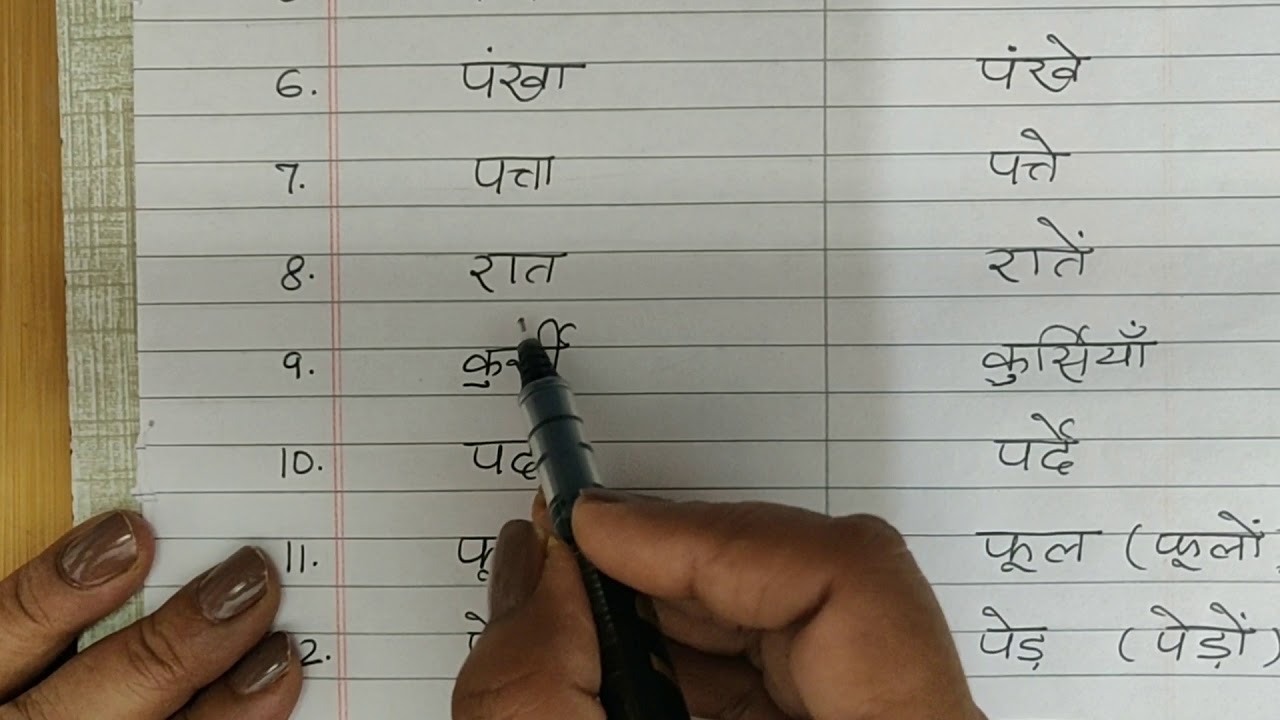 6. पंखा पंखे
7. पत्ता पत्ते
8. रात रातें
9. कुर्सियाँ
10. पर्दे
11. फूल (फूलों
2. पेड़ (पेड़ों)